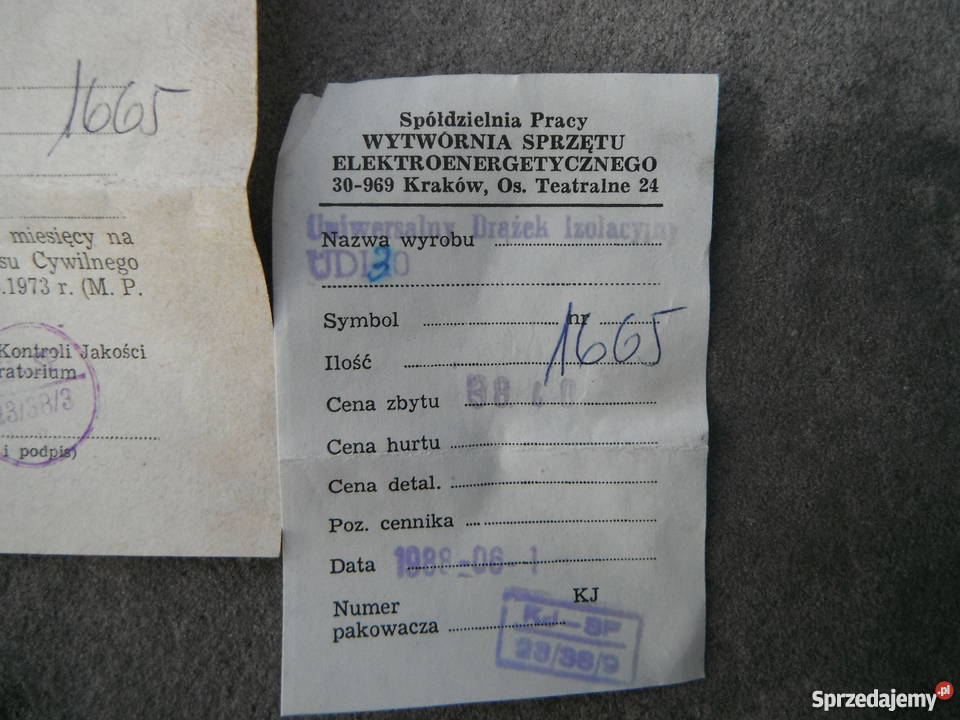 1665
miesięcy na
su Cywilnego
.1973 r. (M. P.
Kontroli Jakości
ratorium
23/38/3
i podpis)
Spółdzielnia Pracy
WYTWÓRNIA SPRZĘTU
ELEKTROENERGETYCZNEGO
30-969 Kraków, Os. Teatralne 24
Uniwersalny Drążek izolacyjny
Nazwa wyrobu
UDI 30
Symbol nr 1665
Ilość
Cena zbytu
Cena hurtu
Cena detal.
Poz. cennika
Data 1988-06-1
KJ
Numer
pakowacza
KJ-SP
23/38/9
Sprzedajemy.pl